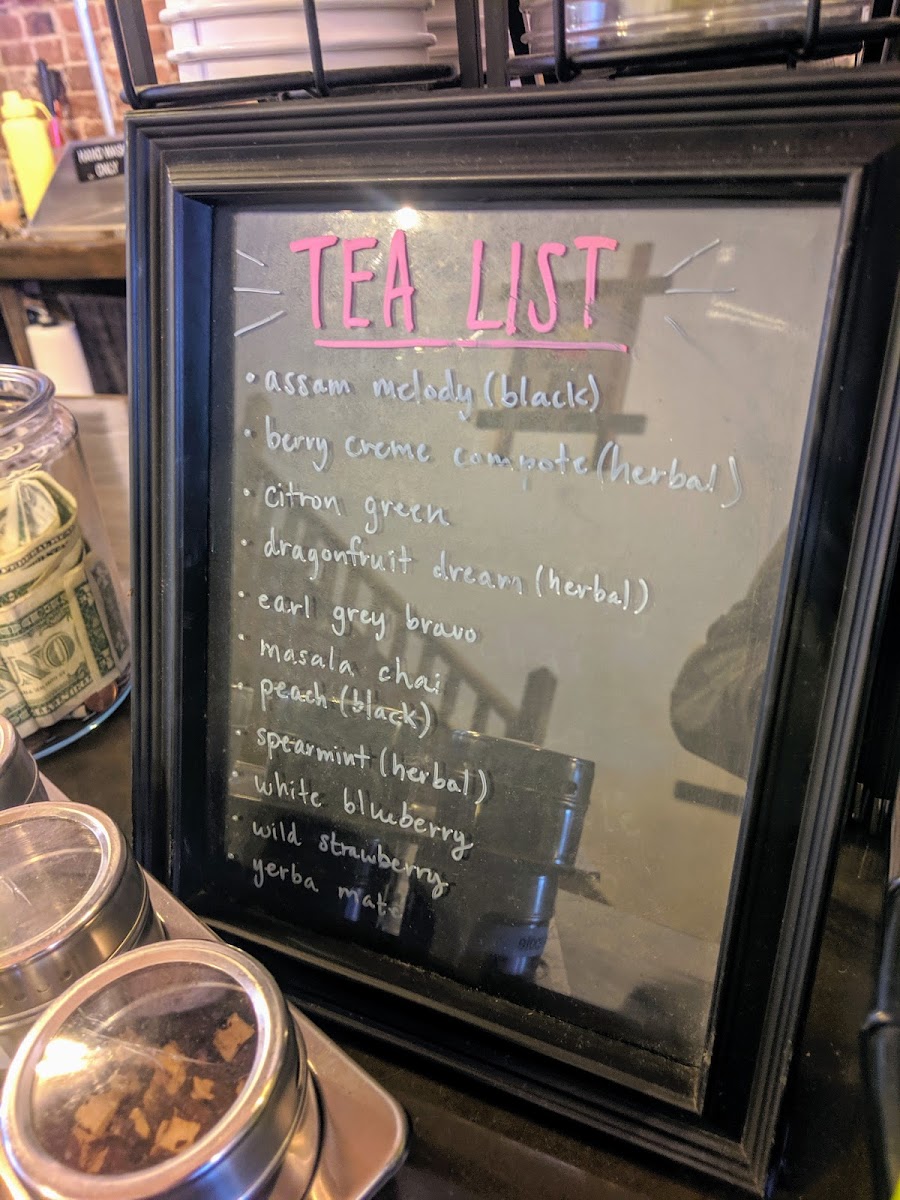 HAND WASH
ONLY
TEA LIST
• assam melody (black)
• berry creme compote (herbal)
• citron green
• dragonfruit dream (herbal)
• earl grey bravo
• masala chai
• peach (black)
• spearmint (herbal)
• white blueberry
• wild strawberry
• yerba mate